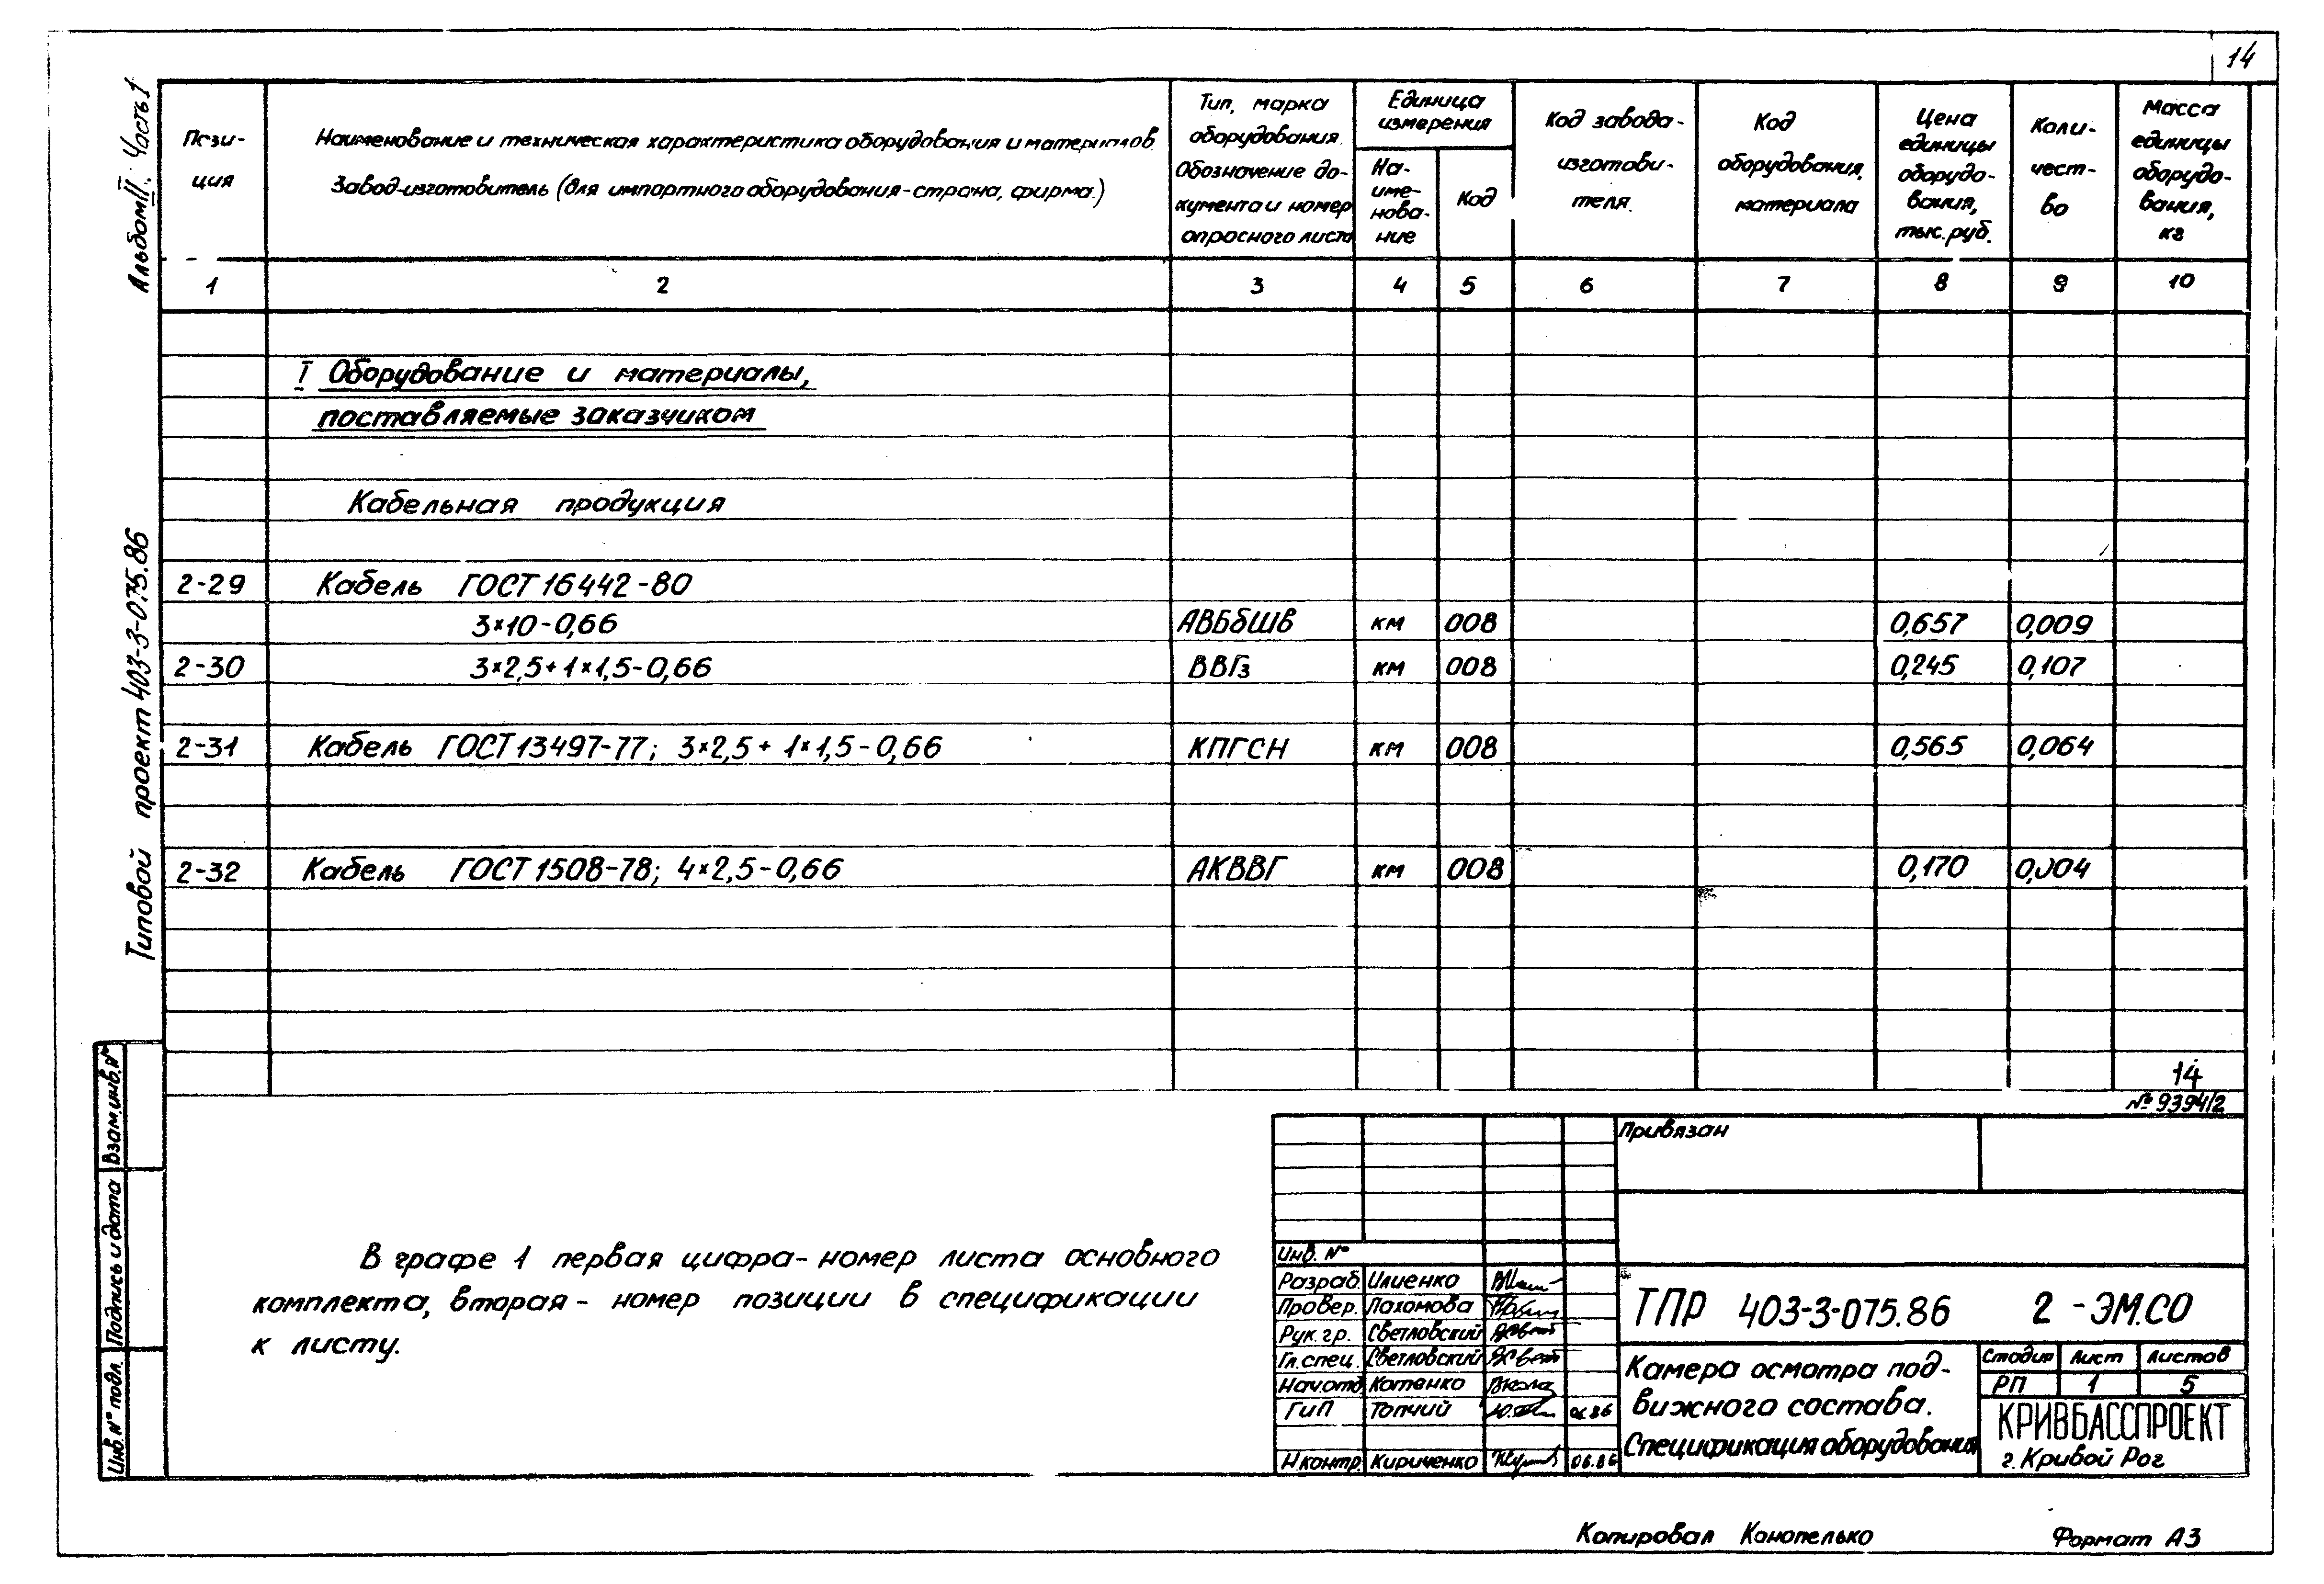 14
Альбом II. Часть 1
Типовой проект 403-3-075.86
Пози-
ция
Наименование и техническая характеристика оборудования и материалов.
Завод-изготовитель (для импортного оборудования - страна, фирма.)
Тип, марка
оборудования.
Обозначение до-
кумента и номер
опросного листа
Единица
измерения
На-
име-
нова-
ние
Код
Код завода-
изготови-
теля.
Код
оборудования,
материала
Цена
единицы
оборудо-
вания,
тыс. руб.
Коли-
чест-
во
Масса
единицы
оборудо-
вания,
кг
1 2 3 4 5 6 7 8 9 10
I Оборудование и материалы,
поставляемые заказчиком
Кабельная продукция
2-29 Кабель ГОСТ 16442-80
3×10-0,66 АВБбШв км 008 0,657 0,009
2-30 3×2,5+1×1,5-0,66 ВВГз км 008 0,245 0,107
2-31 Кабель ГОСТ 13497-77; 3×2,5+ 1×1,5-0,66 КПГСН км 008 0,565 0,064
2-32 Кабель ГОСТ 1508-78; 4×2,5-0,66 АКВВГ км 008 0,170 0,004
14
№ 9394/2
В графе 1 первая цифра - номер листа основного
комплекта, вторая - номер позиции в спецификации
к листу.
Взам.инв.№
Подпись и дата
Инв.№ подл.
Привязан
Инв. №
Разраб. Илиенко
Провер. Пахомова
Рук. гр. Светловский
Гл. спец. Светловский
Нач.отд. Котенко
ГиП Топчий 06.86
Н контр. Кириченко 06.86
ТПР 403-3-075.86 2 -ЭМ.СО
Камера осмотра под-
вижного состава.
Спецификация оборудования
Стадия Лист Листов
РП 1 5
КРИВБАССПРОЕКТ
г. Кривой Рог
Копировал Конопелько
Формат А3